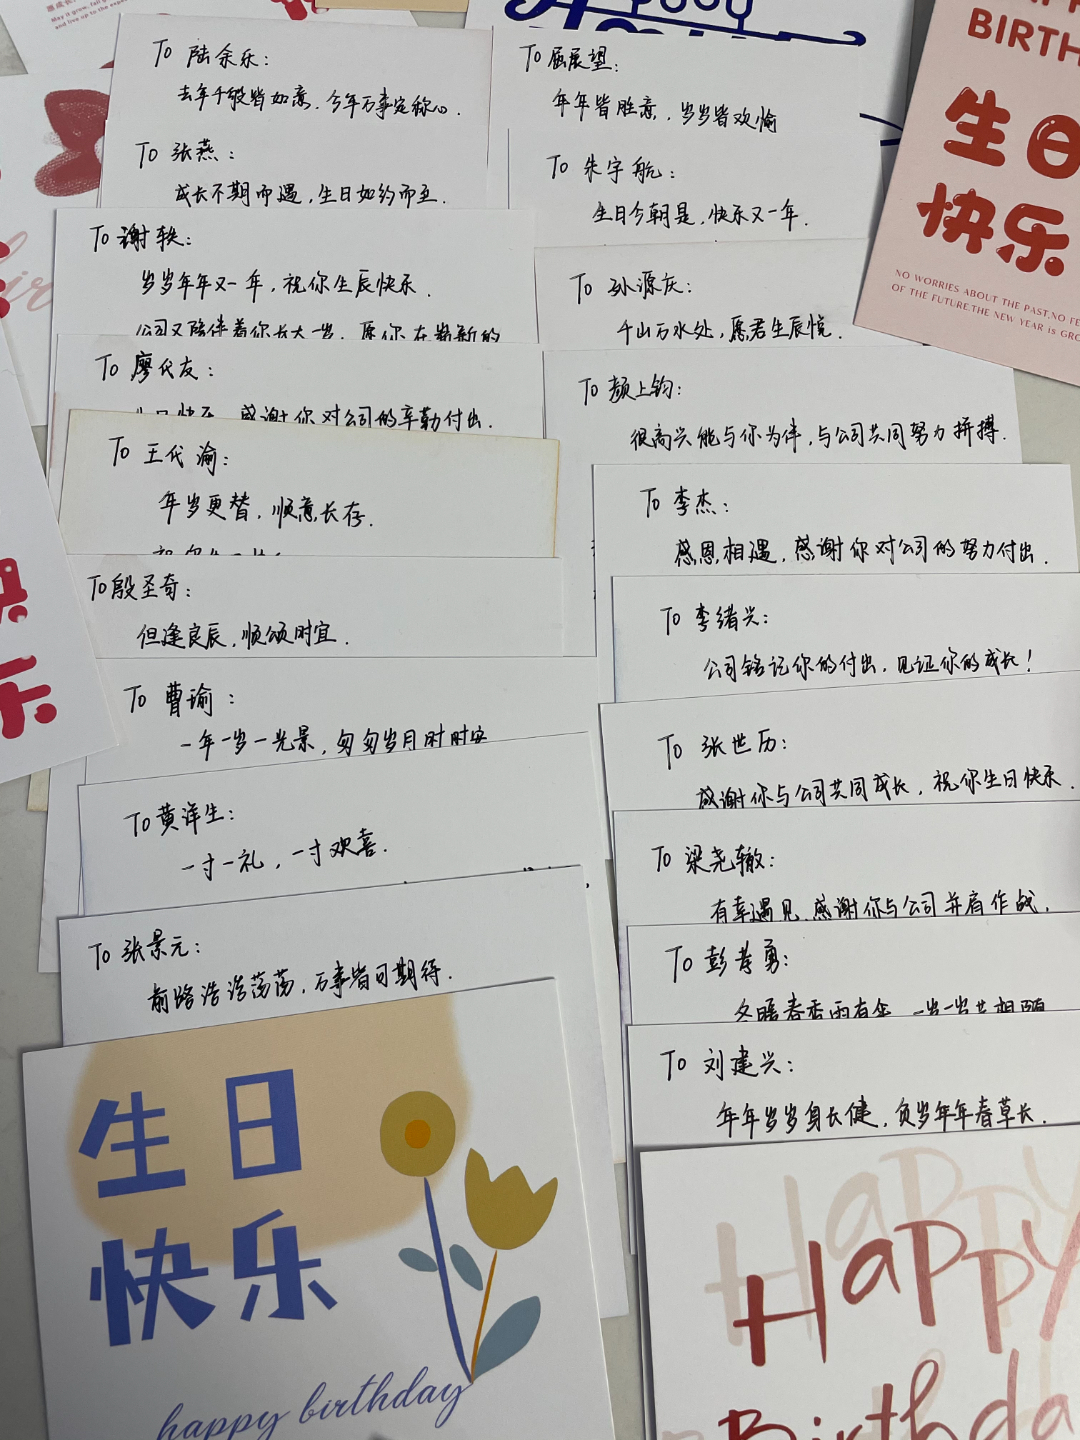 To 陆余乐：
去年千般皆如意，今年万事定称心．
To 张燕：
成长不期而遇，生日如约而至．
To 谢轶：
岁岁年年又一年，祝你生辰快乐．
公司又陪伴着你长大一岁，愿你在崭新的
To 廖代友：
生日快乐，感谢你对公司的辛勤付出．
To 王代渝：
年岁更替，顺意长存．
To 殷圣奇：
但逢良辰，顺颂时宜．
To 曹瑜：
一年一岁一光景，匆匆岁月时时安
To 黄洋生：
一寸一礼，一寸欢喜．
To 张景元：
前路浩浩荡荡，万事皆可期待．
生日
快乐
happy birthday
To 屈展望：
年年皆胜意，岁岁皆欢愉
To 朱宇航：
生日今朝是，快乐又一年．
To 孙源庆：
千山万水处，愿君生辰悦．
To 颜上钧：
很高兴能与你为伴，与公司共同努力拼搏．
To 李杰：
感恩相遇，感谢你对公司的努力付出．
To 李绪兴：
公司铭记你的付出，见证你的成长！
To 张世历：
感谢你与公司共同成长，祝你生日快乐．
To 梁尧辙：
有幸遇见，感谢你与公司并肩作战．
To 彭孝勇：
冬暖春香雨有余，一岁一岁共相随
To 刘建兴：
年年岁岁身长健，负岁年年春草长．
Happy
Birthda
BIRTH
生日
快乐
NO WORRIES ABOUT THE PAST,NO FE
OF THE FUTURE.THE NEW YEAR is GRO